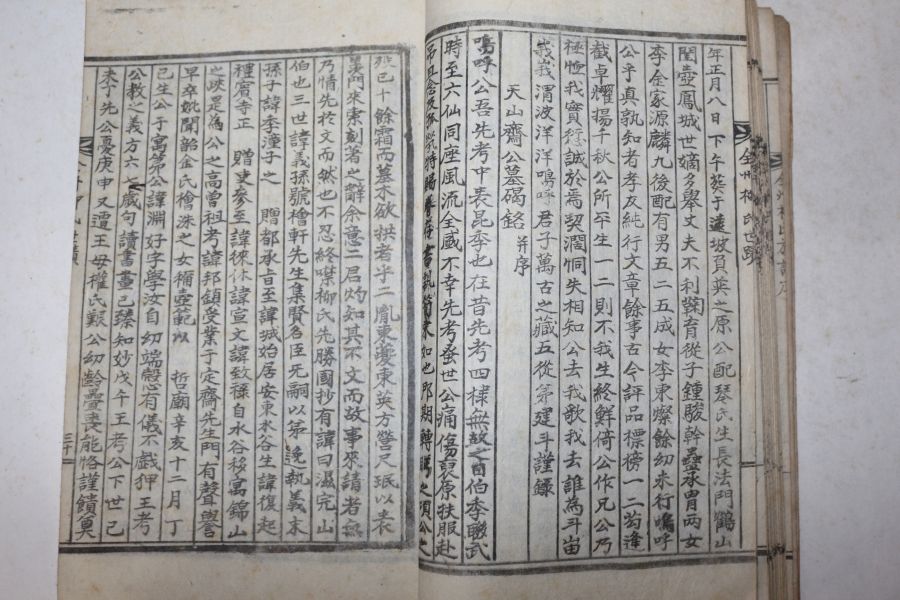 年正月八日下午葬于遠坡負艮之原公配琴氏生長法門鶴山
閨壼鳳城世嫡多擧丈夫不利鞠育從子鍾駿幹蠱承胄兩女
李金家源麟九後配有男五二五成女李東燦餘幼未行嗚呼
公乎眞孰知者孝友純行文章餘事古今評品標榜一二苟逢
截卓耀揚千秋公所平生一二則不我生終鮮倚公作兄公乃
極恤我實衍誠於焉契濶恫失相知公去我歌我去誰為斗峀
峩峩渭波洋洋嗚呼君子萬古之藏五從弟建斗謹錄
天山齋公墓碣銘 并序
嗚呼公吾先考中表昆季也在昔先考四棣無故之日伯季聯武
時至六仙同座風流全盛不幸先考蚤世公痛傷裒原扶服赴
如也即期轉
已十餘霜而墓木欲拱者乎二胤東夔東英方營尺珉以表
門來索刻著之辭余意二君灼如其不文而故事來請者無
乃情先於文而然也不忍終噤柳氏先勝國抄有諱曰濕完山
伯也三世諱義孫號檜軒先生集賢名臣无嗣以弟 執義末
孫子諱季潼子之 贈都承旨至諱城始居安東水谷生諱復起
禮賓寺正 贈吏參至諱徠休諱宣文諱致祿自水谷移寓錦山
之峽是為公之高曾祖考諱邦鎮受業于定齋先生門有聲譽
早卒妣聞韶金氏檜洙之女 壼範以 哲廟辛亥十二月丁
已生公于寓第公諱淵好字學汝自幼端慤有儀不戲狎王考
公教之義方六七歲句讀書畫已臻知妙戊午王考公下世已
未季先公憂庚申又遭王母權氏艱公幼齡疊喪能恪謹饋奠
三十